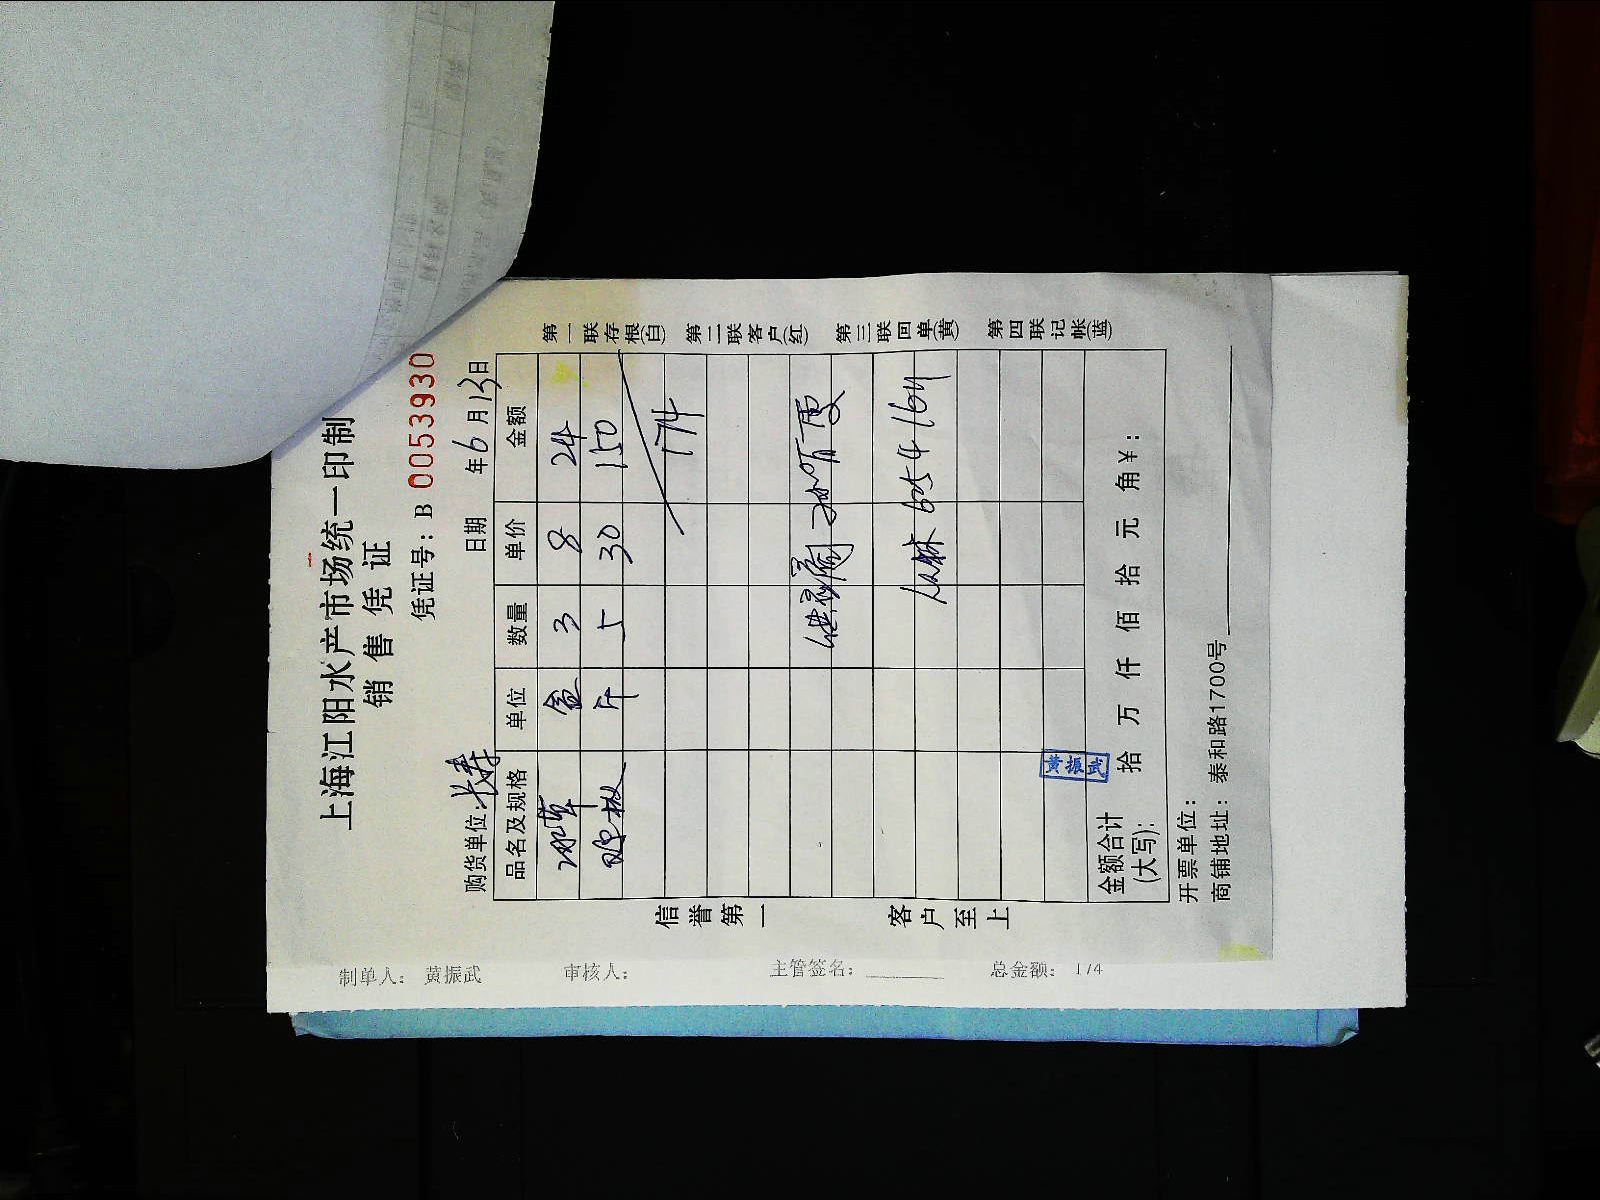 上海江阳水产市场统一印制
销售凭证
凭证号：B 0053930
购货单位：长寿 日期 年6月13日
品名及规格 单位 数量 单价 金额
盒 3 8 24
斤 5 30 150
174
6254164
黄振武
金额合计
(大写)： 拾 万 仟 佰 拾 元 角￥：
开票单位：
商铺地址：泰和路1700号
第一联存根(白)
第二联客户(红)
第三联回单(黄)
第四联记帐(蓝)
信誉第一
客户至上
制单人： 黄振武 审核人： 主管签名： 总金额： 174